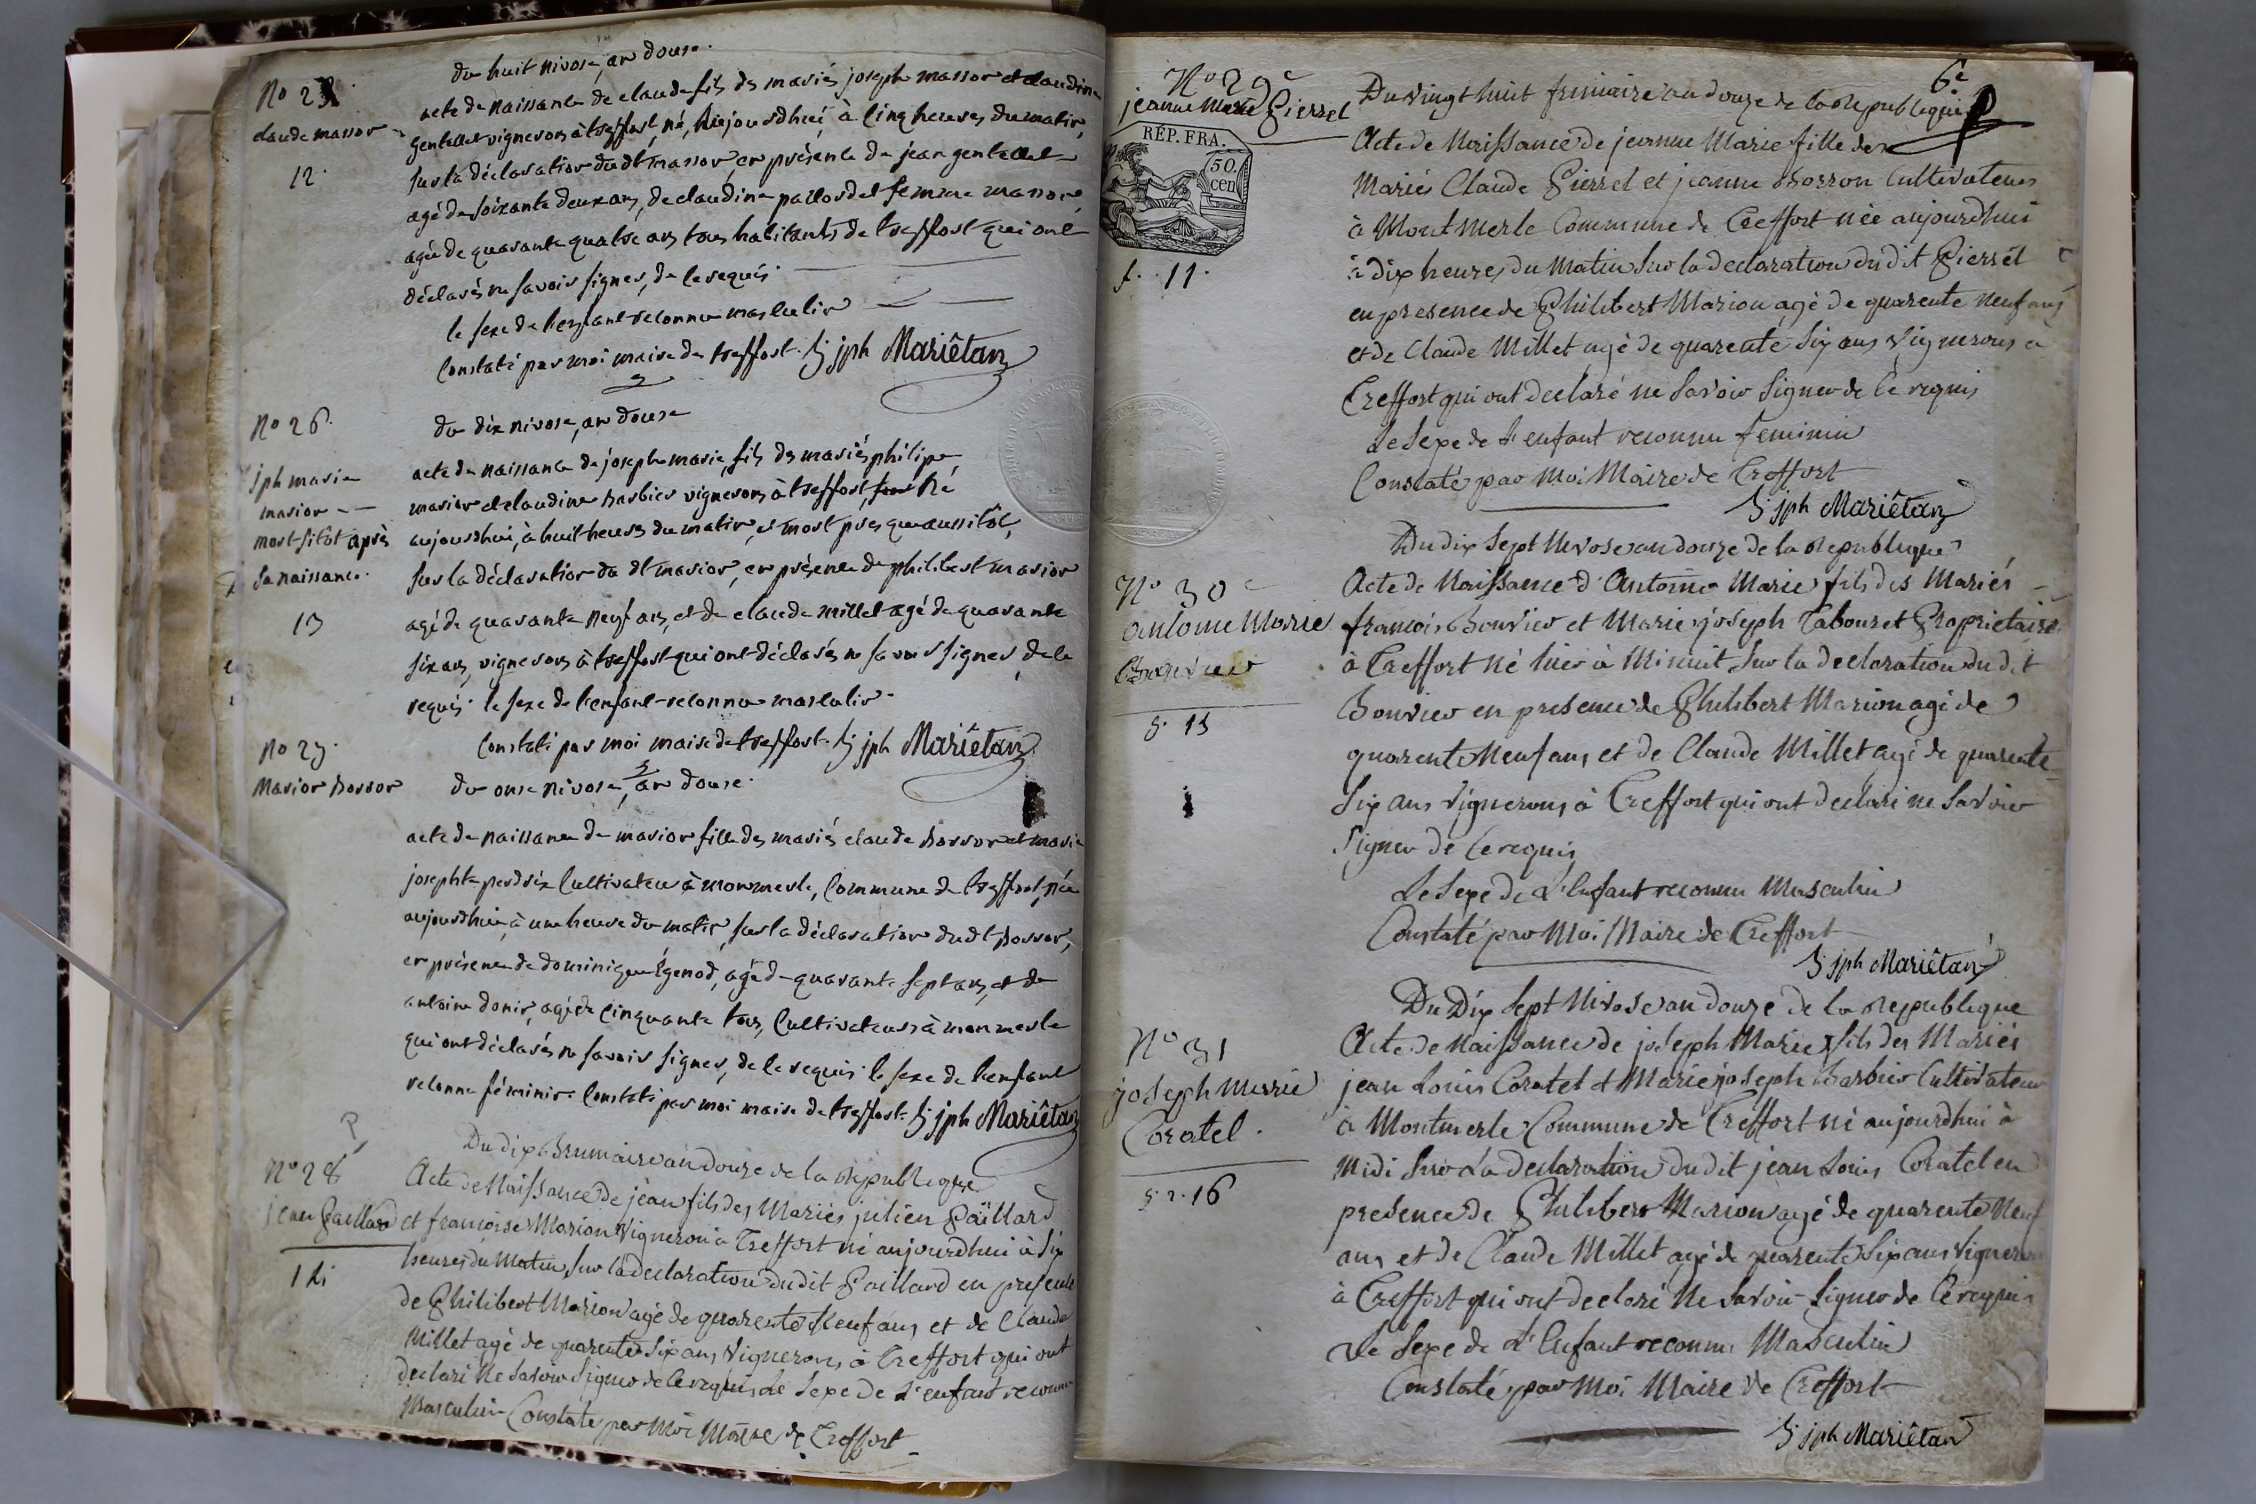 du huit nivose, an douse.
No 25
claude massor
12.
acte de naissance de claude fils des mariés joseph massor et claudine
gentellet vignerons à treffort, né, aujourdhui, à cinq heures du matin,
sur la déclaration du dt massor, en présence de jean gentellet
agé de soixante deux ans, de claudine paillordet femme massor,
agée de quarante quatre ans tous habitants de treffort qui ont
déclarés ne savoir signer, de ce requis.
le sexe de l'enfant reconnu masculin
Constaté par moi maire de treffort. S jph Mariêtan
No 26.
jph marie
marion
mort sitôt après
sa naissance.
13
du dix nivose, an douse
acte de naissance de joseph marie, fils des mariés philipe
marion et claudine barbier vignerons à treffort, né
aujourdhui, à huit heures du matin, et mort presque aussitôt,
sur la déclaration du dt marion, en présence de philibert marion
agé de quarante neuf ans, et de claude millet agé de quarante
six ans, vignerons à treffort qui ont déclarés ne savoir signer, de ce
requis. le sexe de l'enfant reconnu masculin.
Constaté par moi maire de treffort. S jph Mariêtan
No 27.
Marion borron
du onse nivose, an douse.
acte de naissance de marion fille des mariés claude borron et marie
josephte perdrix Cultivateur à monmerle, Commune de treffort, née
aujourdhui, à une heure du matin, sur la déclaration dudt borron,
en présence de dominique Égenod, agé de quarante sept ans, et de
antoine donis, agé de cinquante tous, Cultivateurs à monmerle
qui ont déclarés ne savoir signer, de ce requis. le sexe de l'enfant
reconnu féminin. Constaté par moi maire de treffort. S jph Mariêtan
No 28
jean Paillard
14
Du dix Brumaire an douze de la Republique
Acte de Naissance de jean fils des Mariés julien Paillard
et françoise Marion Vigneron à Treffort né aujourdhui à Six
heures du Matin, Sur la declaration dudit Paillard en presence
de Philibert Marion agé de quarente Neuf ans et de Claude
Millet agé de quarente Six ans Vignerons à Treffort qui ont
declaré Ne Savoir Signer de Ce requis Le Sexe de L'enfant reconnu
Masculin Constaté par Moi Maire de Treffort
6e
No 29e
jeanne Marie Pierrel
RÉP. FRA.
50.
cen
11.
Du Vingt huit frimaire an douze de la Republique
Acte de Naissance de jeanne Marie fille des
Mariés Claude Pierrel et jeanne Borron Cultivateurs
à Montmerle Commune de Treffort née aujourdhui
à dix heures du Matin Sur la declaration dudit Pierrel
en presence de Philibert Marion agé de quarente Neuf ans
et de Claude Millet agé de quarente Six ans Vignerons a
Treffort qui ont declaré ne Savoir Signer de Ce requis
Le Sexe de L'enfant reconnu feminin
Constaté par Moi Maire de Treffort
S jph Mariêtan
No 30e
Antoine Marie
Bouvier
15
Du dix Sept Nivose an douze de la Republique
Acte de Naissance d'Antoine Marie fils des Mariés
françois Bouvier et Marie joseph Tabouret Proprietaire
à Treffort Né hier à Minuit Sur la declaration dudit
Bouvier en presence de Philibert Marion agé de
quarente Neuf ans et de Claude Millet agé de quarente
Six ans Vignerons à Treffort qui ont declaré ne Savoir
Signer de Ce requis
Le Sexe de L'Enfant reconnu Masculin
Constaté par Moi Maire de Treffort
S jph Mariêtan
No 31
joseph Marie
Coratel.
16
Du Dix Sept Nivose an douze de la Republique
Acte de Naissance de joseph Marie fils des Mariés
jean Louis Coratel et Marie joseph Barbier Cultivateur
à Montmerle Commune de Treffort né aujourdhui à
Midi Sur La declaration dudit jean Louis Coratel en
presence de Philibert Marion agé de quarente Neuf
ans et de Claude Millet agé de quarente Six ans Vignerons
à Treffort qui ont declaré Ne Savoir Signer de Ce requis
Le Sexe de L'Enfant reconnu Masculin
Constaté par Moi Maire de Treffort
S jph Mariêtan